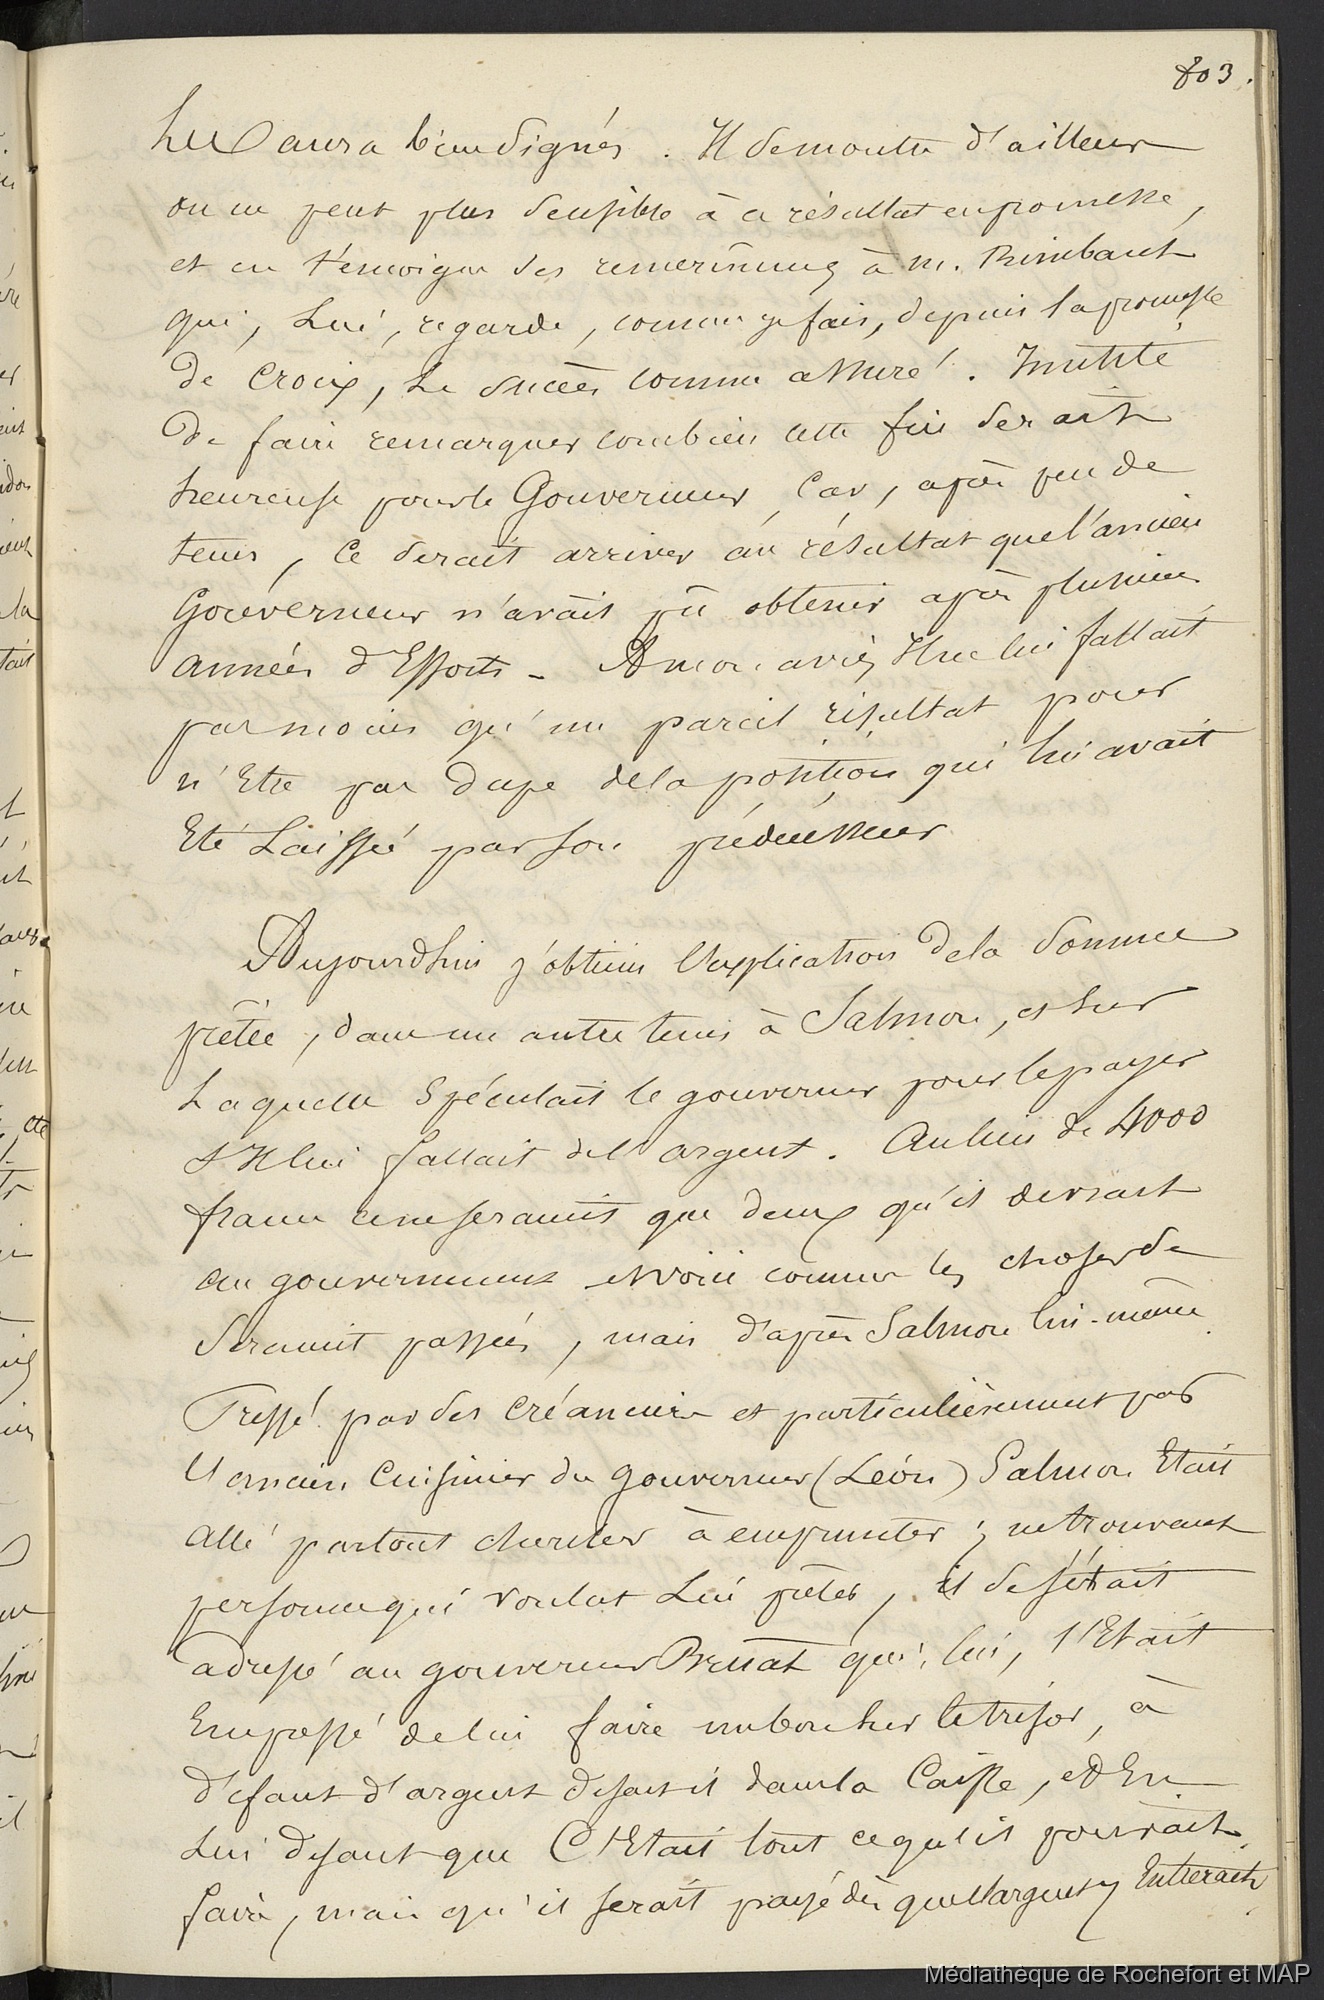 803.
lui aura bien dignés. Il se montre d'ailleur
on ne peut plus sensible à ce résultat en promesse,
et en témoigne des remercîmens à M. Rimbault
qui, Lui, regarde, comme je fais, depuis la promesse
de Croix, Le succès comme assuré. Inutile
De faire remarquer combien cette fin serait
heureuse pour le Gouverneur, Car, après peu de
tems, Ce serait arriver au résultat que l'ancien
Gouverneur n'avait pû obtenir après plusieurs
années d'Efforts - A mon avis Il ne lui fallait
pas moins qu'un pareil résultat pour
n'Etre pas dupe de la position qui lui avait
Eté Laissée par son prédécesseur

Aujourdhui j'obtiens l'explication de la somme
prêtée, dans un autre tems à Salmon, et sur
Laquelle Spéculait le gouverneur pour le payer
S'Il lui fallait de l'argent. Au lieu de 4000
francs ce ne seraient que deux qu'il devrait
au gouvernement et voici comme les choses de
Seraient passées, mais d'après Salmon lui-même.
Pressé par des Créanciers et particulièrement par
l'ancien Cuisinier du gouverneur (Léon) Salmon Etait
allé partout chercher à emprunter; ne trouvant
personne qui voulut Lui prêter, il se s'était
adressé au gouverneur Bruat qui, lui, s'Etait
Empressé de lui faire un bon sur le trésor, à
défaut d'argent disait il dans la Caisse, et En
Lui disant que C'Etait tout ce qu'il pouvait
faire, mais qu'il serait payé dès que l'argent y Entrerait.
Médiathèque de Rochefort et MAP